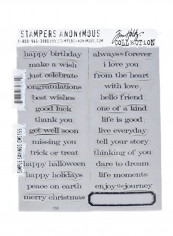 STAMPERS ANONYMOUS
Tim Holtz
COLLECTION
happy birthday
make a wish
just celebrate
congratulations
best wishes
good luck
thank you
get well soon
missing you
trick or treat
happy halloween
happy holidays
peace on earth
merry christmas
always & forever
i love you
from the heart
with love
hello friend
one of a kind
life is good
live everyday
tell your story
thinking of you
dare to dream
life moments
enjoy the journey
SIMPLE SAYINGS CMS155